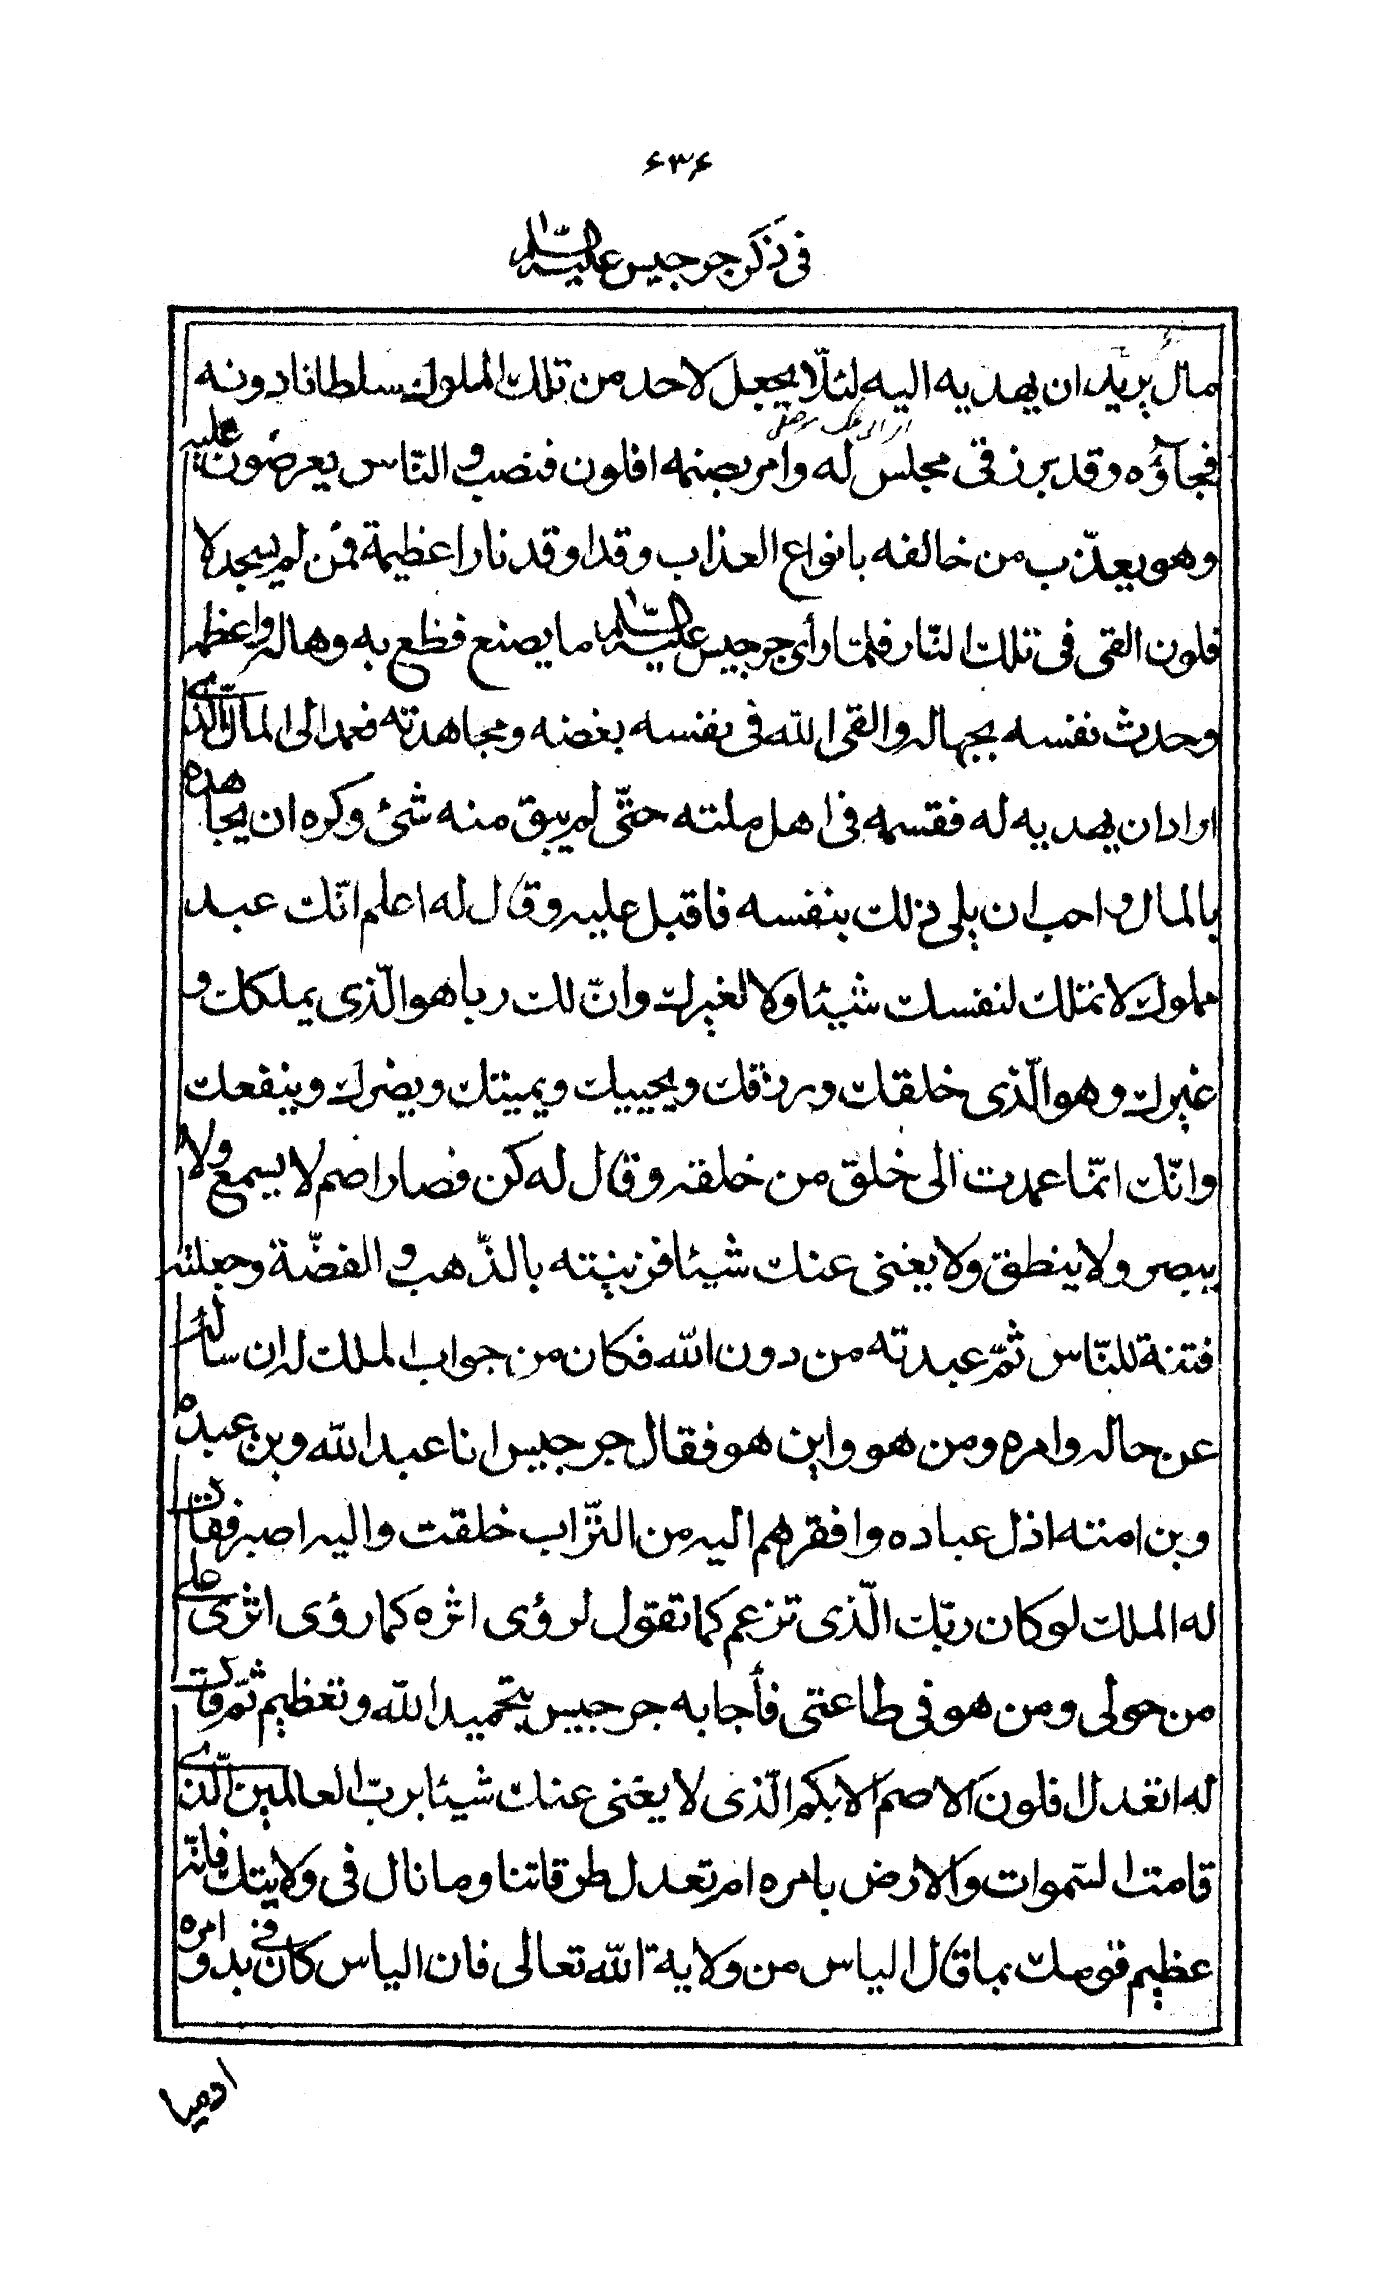 ۶۳۶
فی ذکر جرجیس علیه السلام
مال یرید ان یهدیه الیه لئلّا یجعل لاحد من تلک الملوک سلطانا دونه
فجآؤه وقد برز فی مجلس له وامر بصنمه افلون فنصب و النّاس یعرضون علیه
وهو یعذّب من خالفه بانواع العذاب وقد اوقد نارا عظیمة فمن لم یسجد لا
فلون القی فی تلک النّار فلمّا رأی جرجیس علیه السّلام ما یصنع فظع به وهاله واعظمه
وحدث نفسه بجهاله والقی الله فی نفسه بغضه ومجاهدته فعمد الی المال الّذی
اراد ان یهدیه له فقسمه فی اهل ملته حتّی لم یبق منه شئ وکره ان یجاهده
بالمال و احب ان یلی ذلک بنفسه فاقبل علیه وقال له اعلم انّک عبد
مملوک لا تملک لنفسک شیئا ولا لغیرک وانّ لک ربا هو الّذی یملکک و
غیرک وهو الّذی خلقک ورزقک ویحییک ویمیتک ویضرک وینفعک
وانّک انمّا عمدت الی خلق من خلقه وقال له کن فصار اصم لا یسمع ولا
یبصر ولا ینطق ولا یغنی عنک شیئا فزینته بالذّهب و الفضّة وجعلته
فتنة للنّاس ثمّ عبدته من دون الله فکان من جواب الملک له ان سأله
عن حاله وامره ومن هو واین هو فقال جرجیس انا عبد الله وبن عبده
وبن امته اذل عباده وافقرهم الیه من التّراب خلقت والیه اصیر فقال
له الملک لو کان ربّک الّذی تزعم کما تقول لرؤی اثره کما رؤی اثری علی
من حولی ومن هو فی طاعتی فأجابه جرجیس بتحمید الله وتعظیم ثمّ قال
له اتعدل افلون الاصم الابکم الّذی لا یغنی عنک شیئا بربّ العالمین الّذی
قامت السّموات والارض بامره ام تعدل طرقاتنا وما نال فی ولایتک فانّه
عظیم قومک بما قال الیاس من ولایة الله تعالی فان الیاس کان فی بدو امره
ادمیا